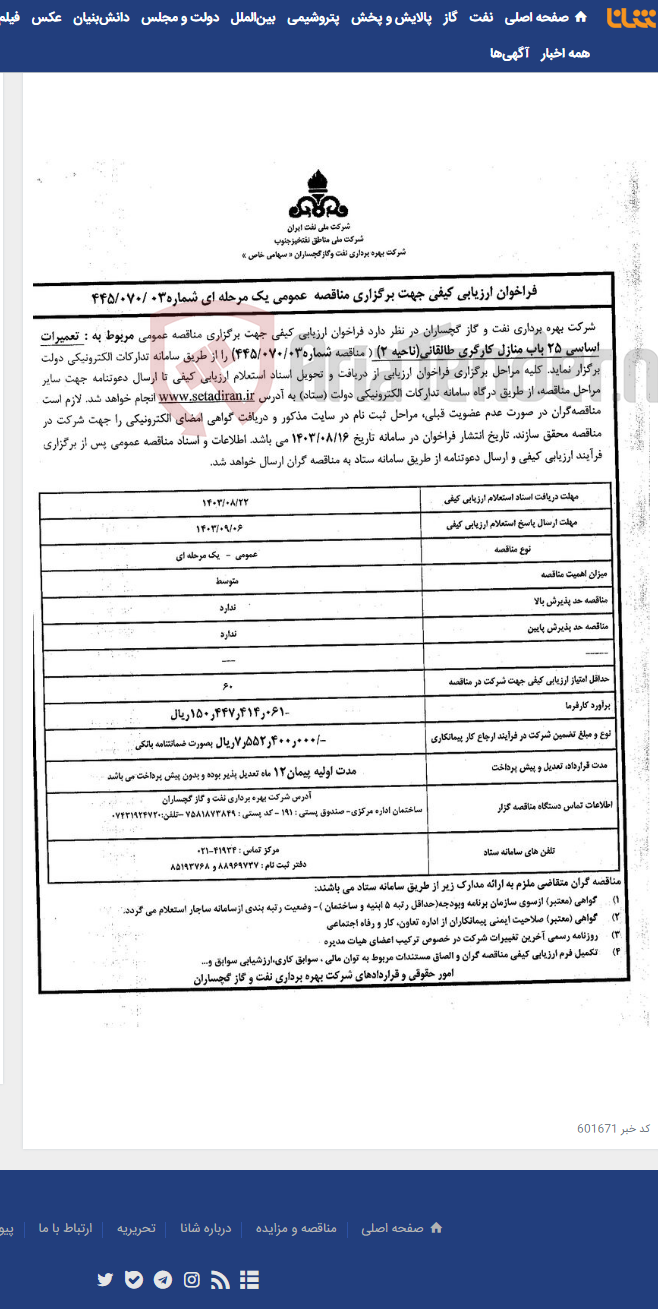 شانا
صفحه اصلی نفت گاز پالایش و پخش پتروشیمی بین‌الملل دولت و مجلس دانش‌بنیان عکس فیلم
همه اخبار آگهی‌ها
شرکت ملی نفت ایران
شرکت ملی مناطق نفتخیز جنوب
شرکت بهره برداری نفت وگاز گچساران « سهامی خاص »
فراخوان ارزیابی کیفی جهت برگزاری مناقصه عمومی یک مرحله ای شماره ۰۳ /۴۴۵/۰۷۰
شرکت بهره برداری نفت و گاز گچساران در نظر دارد فراخوان ارزیابی کیفی جهت برگزاری مناقصه عمومی مربوط به : تعمیرات
اساسی ۲۵ باب منازل کارگری طالقانی(ناحیه ۲) ( مناقصه شماره ۴۴۵/۰۷۰/۰۳) را از طریق سامانه تدارکات الکترونیکی دولت
برگزار نماید. کلیه مراحل برگزاری فراخوان ارزیابی از دریافت و تحویل اسناد استعلام ارزیابی کیفی تا ارسال دعوتنامه جهت سایر
مراحل مناقصه، از طریق درگاه سامانه تدارکات الکترونیکی دولت (ستاد) به آدرس www.setadiran.ir انجام خواهد شد. لازم است
مناقصه‌گران در صورت عدم عضویت قبلی، مراحل ثبت نام در سایت مذکور و دریافت گواهی امضای الکترونیکی را جهت شرکت در
مناقصه محقق سازند. تاریخ انتشار فراخوان در سامانه تاریخ ۱۴۰۳/۰۸/۱۶ می باشد. اطلاعات و اسناد مناقصه عمومی پس از برگزاری
فرآیند ارزیابی کیفی و ارسال دعوتنامه از طریق سامانه ستاد به مناقصه گران ارسال خواهد شد.
مهلت دریافت اسناد استعلام ارزیابی کیفی ۱۴۰۳/۰۸/۲۲
مهلت ارسال پاسخ استعلام ارزیابی کیفی ۱۴۰۳/۰۹/۰۶
نوع مناقصه عمومی - یک مرحله ای
میزان اهمیت مناقصه متوسط
مناقصه حد پذیرش بالا ندارد
مناقصه حد پذیرش پایین ندارد
------ ---
حداقل امتیاز ارزیابی کیفی جهت شرکت در مناقصه ۶۰
برآورد کارفرما ۱۵۰٫۴۴۷٫۴۱۴٫۰۶۱- ریال
نوع و مبلغ تضمین شرکت در فرآیند ارجاع کار پیمانکاری ۷٫۵۵۲٫۴۰۰٫۰۰۰/- ریال بصورت ضمانتنامه بانکی
مدت قرارداد، تعدیل و پیش پرداخت مدت اولیه پیمان ۱۲ ماه تعدیل پذیر بوده و بدون پیش پرداخت می باشد
اطلاعات تماس دستگاه مناقصه گزار آدرس شرکت بهره برداری نفت و گاز گچساران
ساختمان اداره مرکزی- صندوق پستی : ۱۹۱ - کد پستی : ۷۵۸۱۸۷۳۸۴۹ –تلفن: ۰۷۴۳۱۹۲۴۷۲۰
تلفن های سامانه ستاد مرکز تماس : ۴۱۹۳۴-۰۲۱
دفتر ثبت نام : ۸۸۹۶۹۷۳۷ و ۸۵۱۹۳۷۶۸
مناقصه گران متقاضی ملزم به ارائه مدارک زیر از طریق سامانه ستاد می باشند:
۱) گواهی (معتبر) ازسوی سازمان برنامه وبودجه(حداقل رتبه ۵ ابنیه و ساختمان ) - وضعیت رتبه بندی ازسامانه ساجار استعلام می گردد.
۲) گواهی (معتبر) صلاحیت ایمنی پیمانکاران از اداره تعاون، کار و رفاه اجتماعی
۳) روزنامه رسمی آخرین تغییرات شرکت در خصوص ترکیب اعضای هیات مدیره
۴) تکمیل فرم ارزیابی کیفی مناقصه گران و الصاق مستندات مربوط به توان مالی ، سوابق کاری،ارزشیابی سوابق و...
امور حقوقی و قراردادهای شرکت بهره برداری نفت و گاز گچساران
کد خبر 601671
صفحه اصلی مناقصه و مزایده درباره شانا تحریریه ارتباط با ما پیو